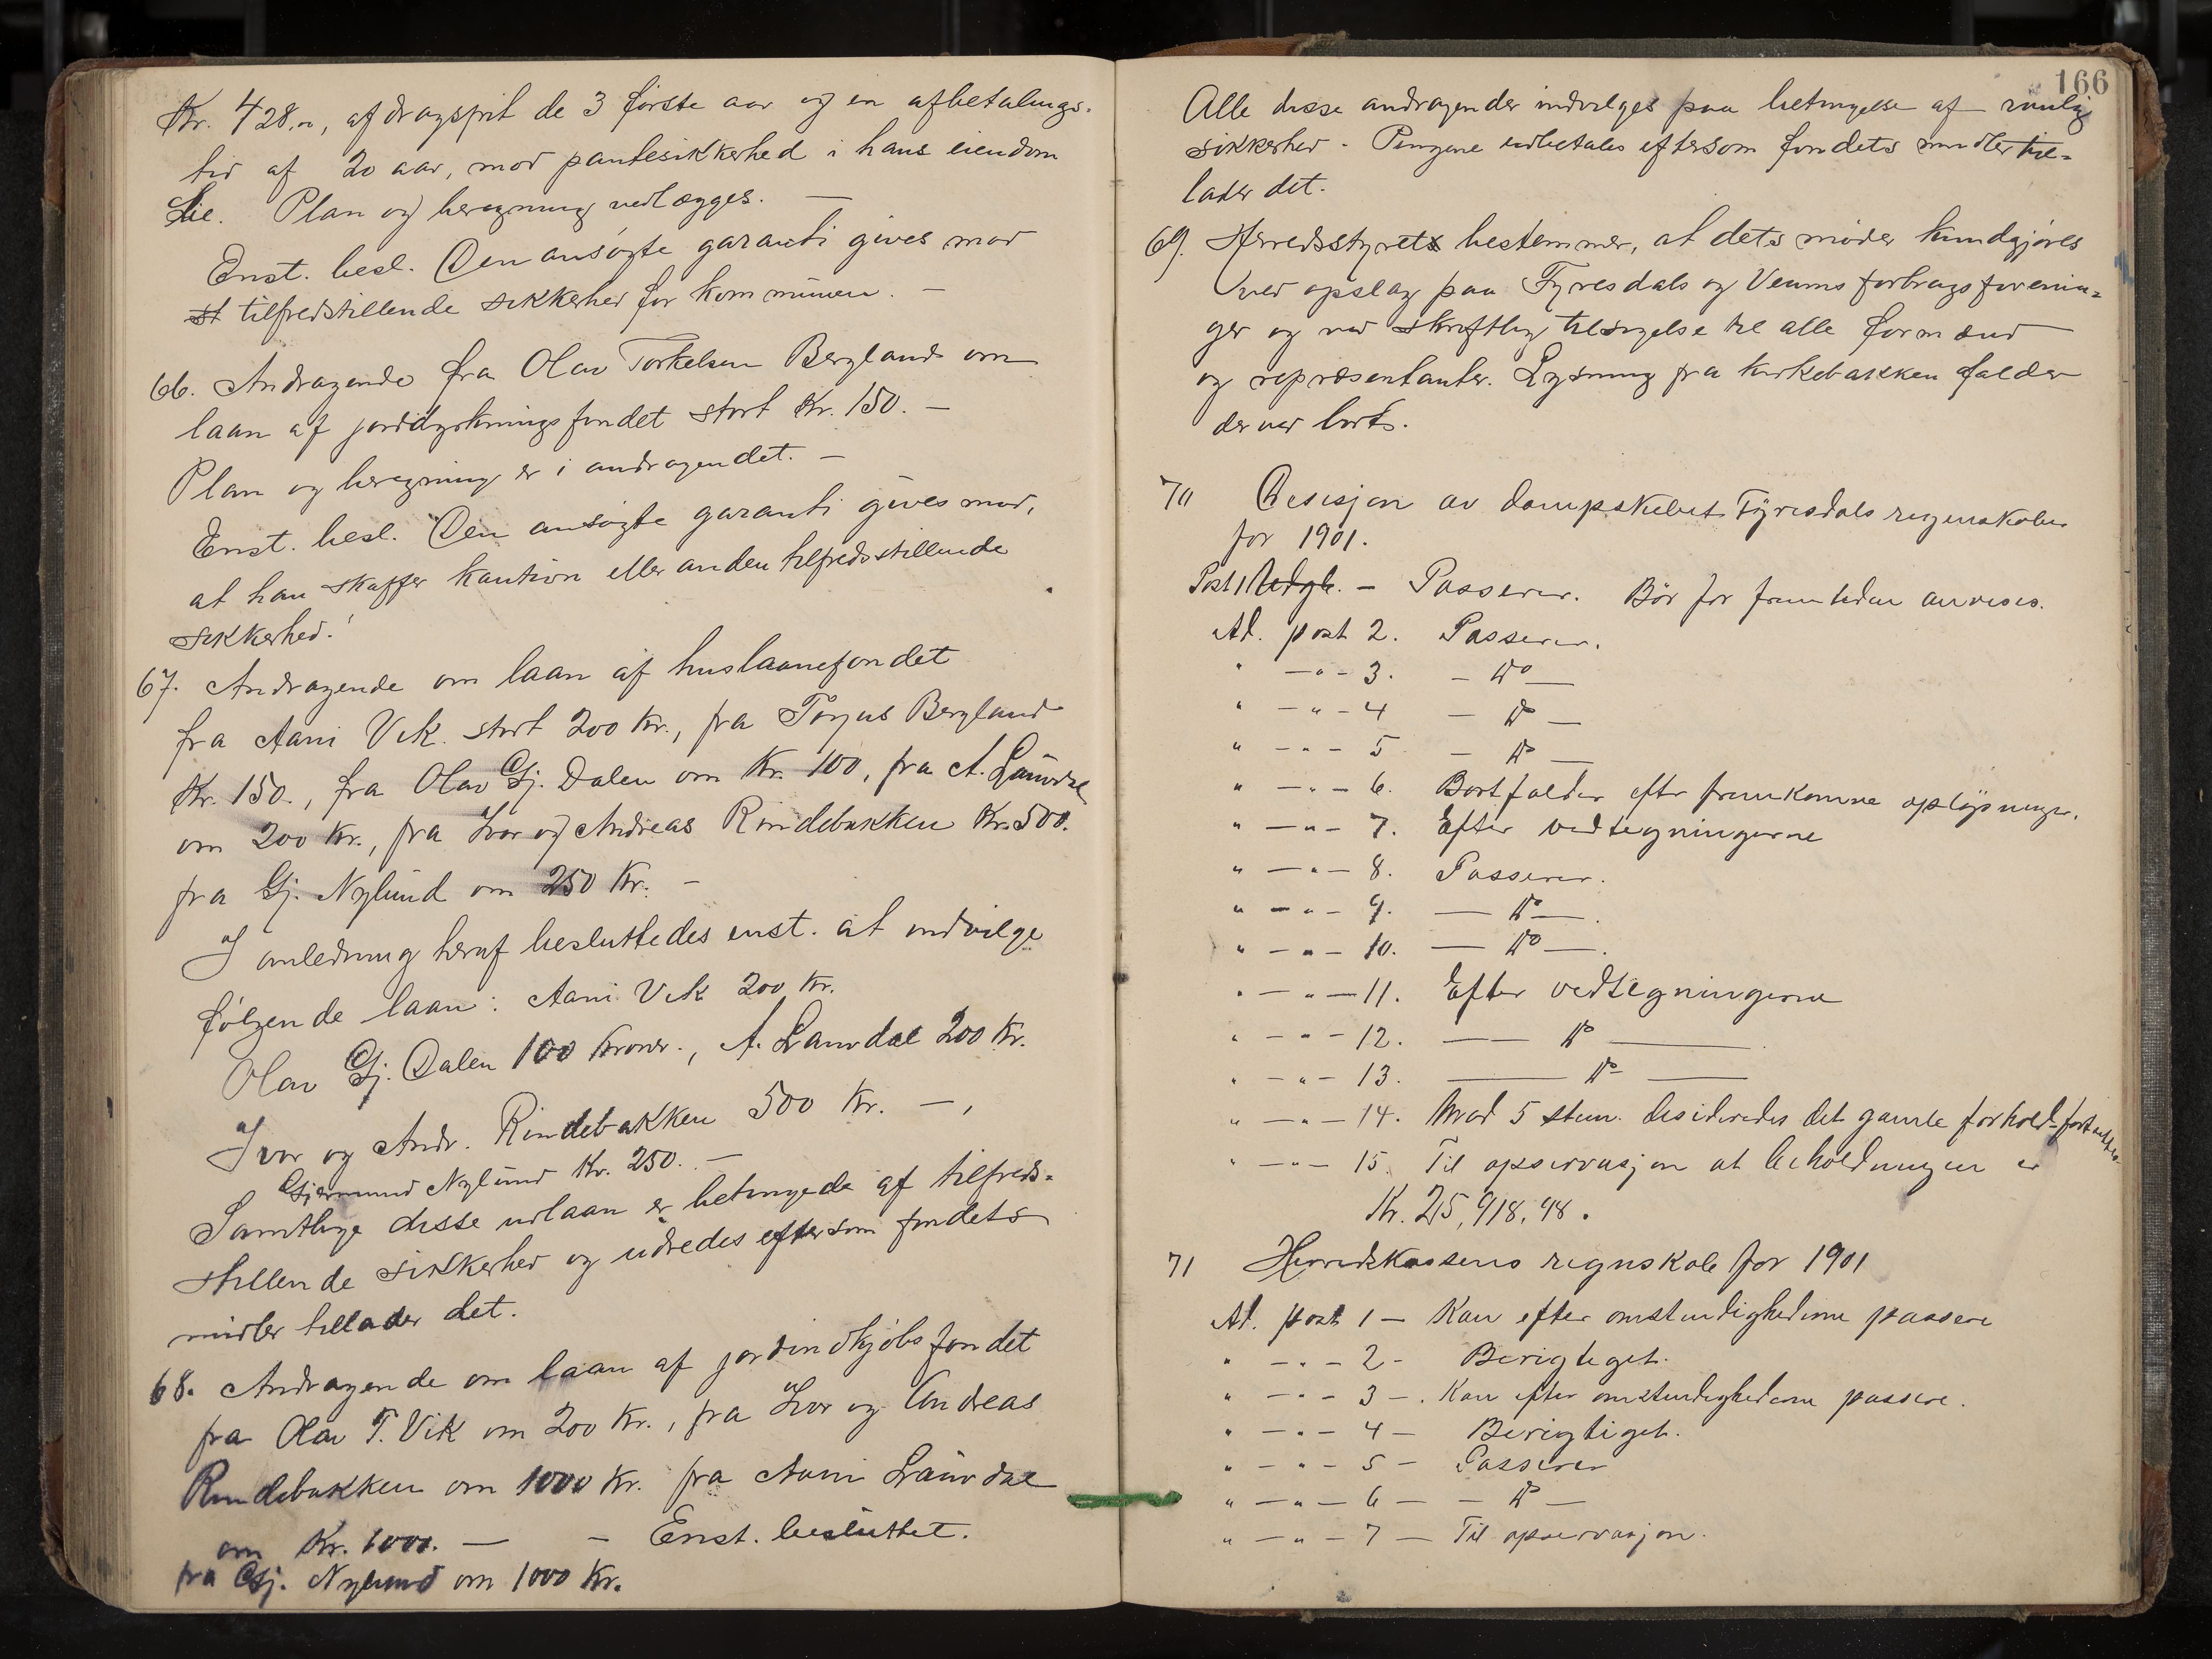 Kr. 428,00, afdragsfrit de 3 første aar og en afbetalings-
tid af 20 aar, mod pantesikkerhed i hans eiendom
Lie. Plan og beregning vedlægges. —
Enst. besl. Den ansøgte garanti gives mod
st tilfredstillende sikkerhed for kommunen. —
66. Andragende fra Olav Torkelsen Bergland om
laan af jorddyrkningsfondet stort Kr. 150. —
Plan og beregning er i andragendet. —
Enst. besl. Den ansøgte garanti gives mod,
at han skaffer kaution eller anden tilfredsstillende
sikkerhed.
67. Andragende om laan af huslaanefondet
fra Aani Vik stort 200 Kr., fra Torjus Bergland
Kr. 150., fra Olav Gj. Dalen om Kr. 100, fra A. Lauvdal
om 200 Kr., fra Ivor og Andreas Rindebakken Kr. 500.
fra Gj. Nylund om 250 Kr. —
I anledning heraf besluttedes enst. at indvilge
følgende laan: Aani Vik 200 Kr.
Olav Gj. Dalen 100 Kroner., A. Lauvdal 200 Kr.
Ivor og Andr. Rindebakken 500 Kr. —,
Gjermund Nylund Kr. 250. —
Samtlige disse udlaan er betingede af tilfreds-
stillende sikkerhed og udredes eftersom fondets
midler tillader det.
68. Andragende om laan af jordindkjøbsfondet
fra Olav T. Vik om 200 Kr., fra Ivor og Andreas
Rindebakken om 1000 Kr. fra Aani Lauvdal
om Kr. 1000. — — Enst. besluttet.
fra Gj. Nylund om 1000 Kr.
166
Alle disse andragender indvilges paa betingelse af vanlig
sikkerhed - Pengene udbetales eftersom fondets midler til-
lader det.
69. Herredsstyret bestemmer, at dets møder kundgjøres
ved opslag paa Fyresdals og Veums forbrugsforenin-
ger og ved skriftlig tilsigelse til alle formænd
og repræsentanter. Lysning fra kirkebakken falder
derved borts.
70 Desisjon av dampskibet Fyresdals regnskaber
for 1901.
Post 1 Udgb. — Passerer. Bör for fremtiden anvises.
Ad. post 2. Passerer.
" — " — 3. — do —
" — " — 4 — do —
" — " — 5 — do —
" — " — 6. Bortfalder efter fremkomne oplysninger.
" — " — 7. Efter vedtegningerne
" — " — 8. Passerer.
" — " — 9. — do —.
" — " — 10. — do —.
" — " — 11. Efter vedtegningerne
" — " — 12. — do —
" — " — 13. — do —
" — " — 14. Mod 5 stem. desideredes det gamle forhold fortsættes
" — " — 15. Til opservasjon at beholdningen er
Kr. 25,918,98.
71 Herredskassens regnskab for 1901
Ad. post 1 — Kan efter omstendighederne passere
" — " — 2 - Berigtiget.
" — " — 3 —. Kan efter omstendighederne passere.
" — " — 4 — Berigtiget.
" — " — 5 — Passerer
" — " — 6 — — do —
" — " — 7 — Til opservasjon.